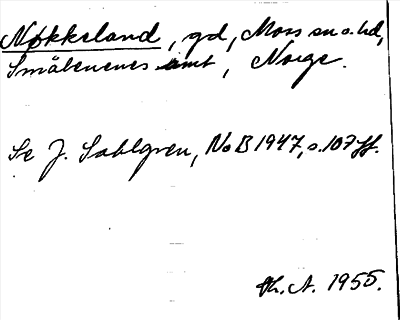 Nøkkeland, gd, Moss sn o. hd,
Smålenenes amt, Norge.
Se J. Sahlgren, NoB 1947, s. 107 ff.
Th. A. 1955.